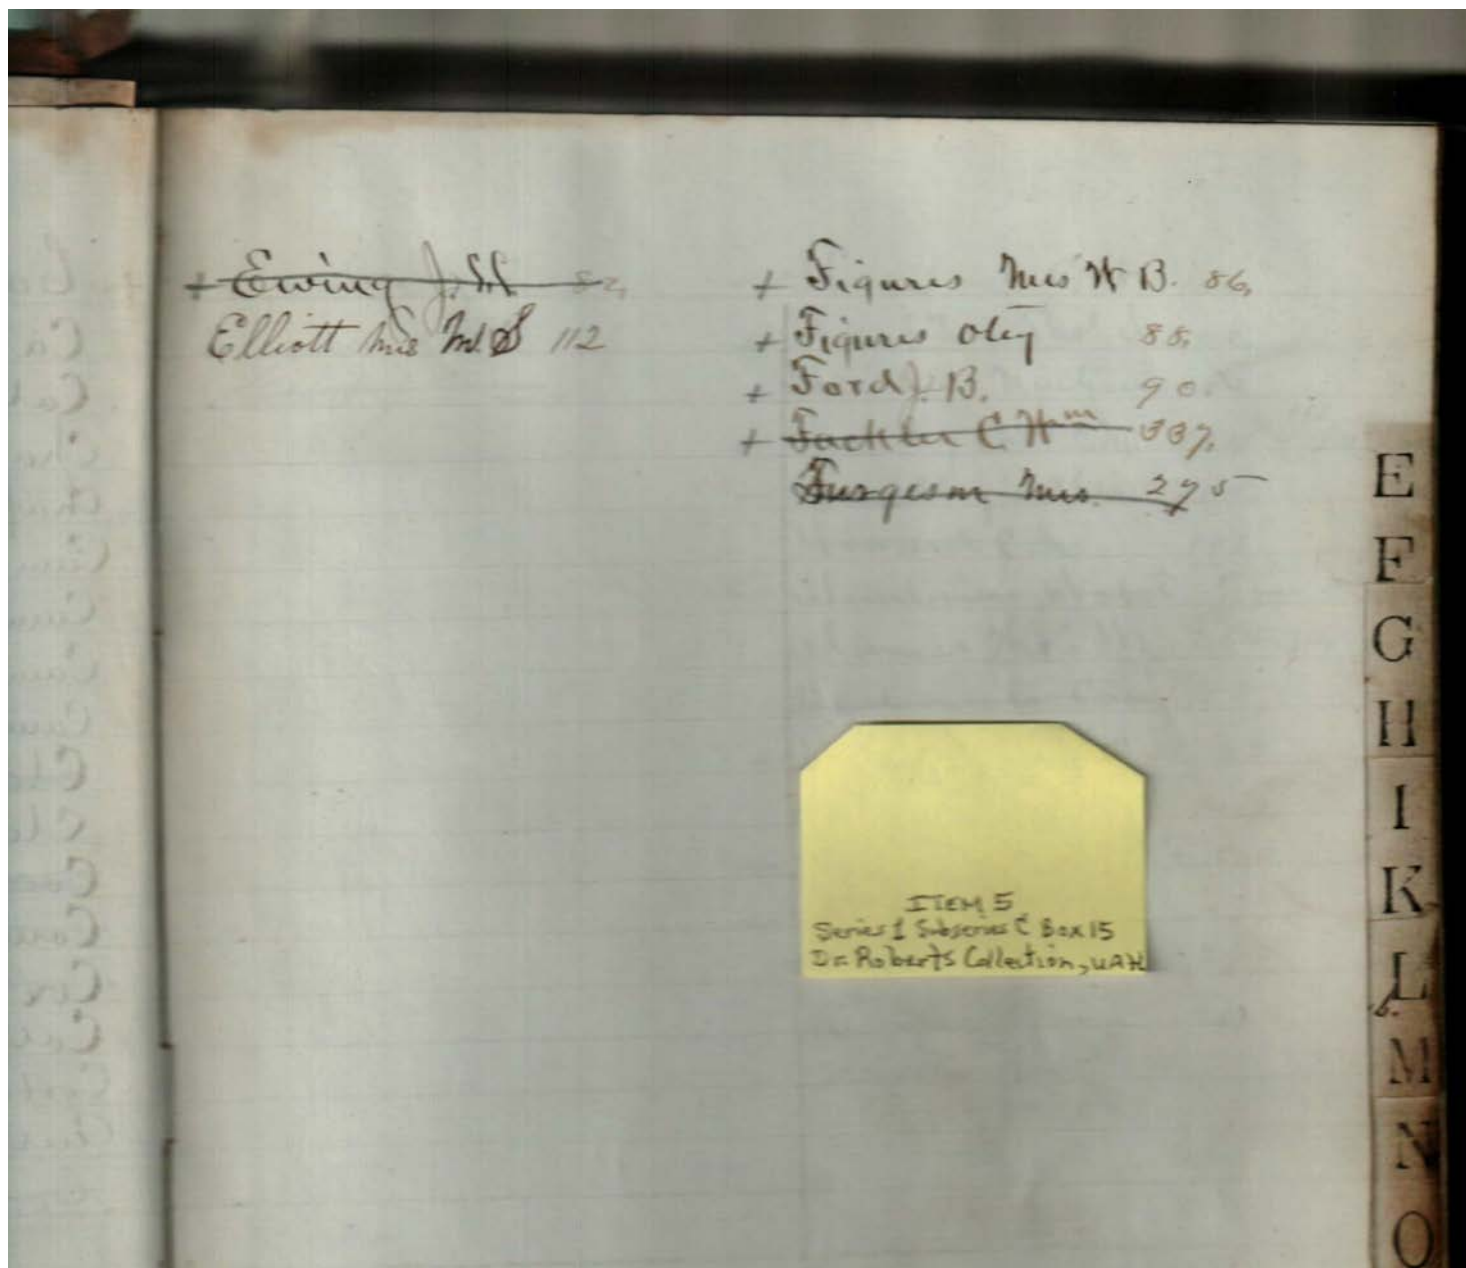 + Ewing J. 82,
Elliott Mrs M. S 112
+ Figures Mrs W B. 86,
+ Figures Otey 88,
+ Ford J. B. 90.
+ Fackler C Wm 337.
Furgeson Mrs. 275
ITEM 5
Series 1 Subseries C Box 15
Dr Roberts Collection, UAH
E
F
G
H
I
K
L
M
N
O